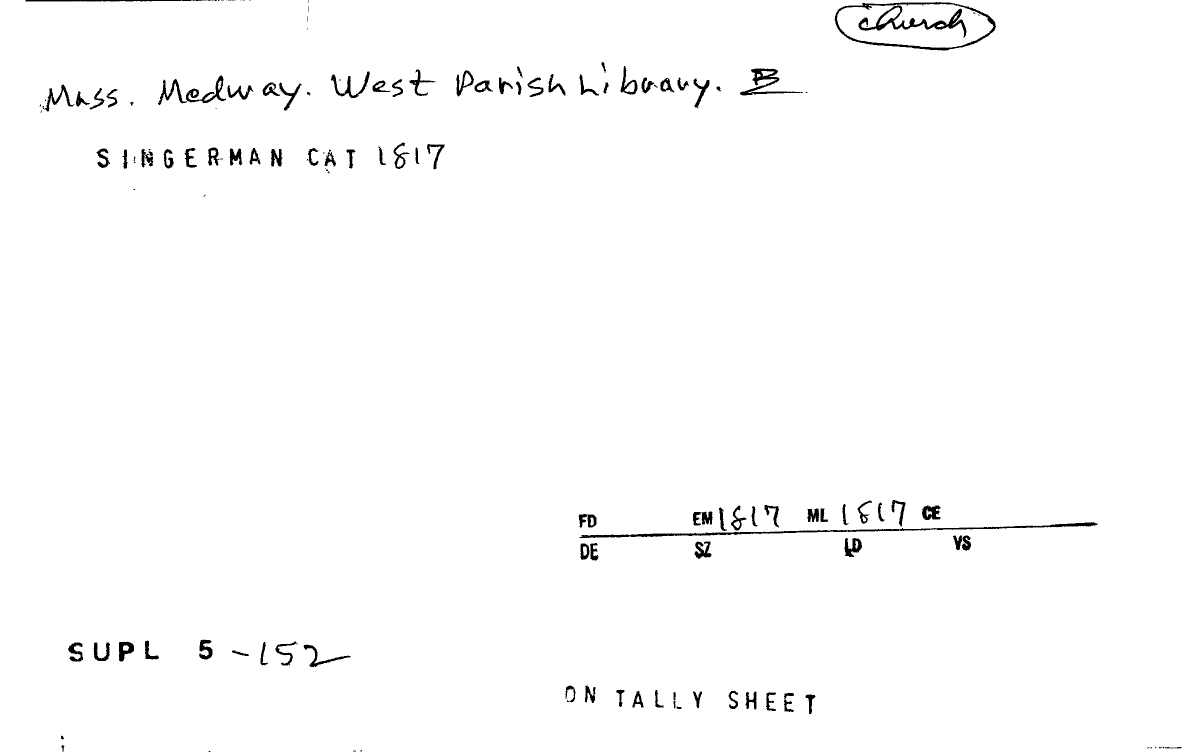 church
Mass. Medway. West Parish Library. B
SINGERMAN CAT 1817
FD EM 1817 ML 1817 CE
DE SZ LD VS
SUPL 5 - 152
ON TALLY SHEET